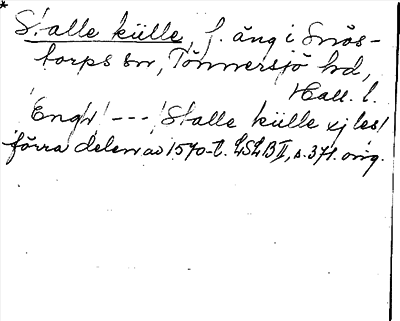 *
Stalle külle, f. äng i Snös-
torps sn, Tönnersjö hd,
Hall. l.
Engh --- Stalle külle xj les
förra delen av 1570-t. LSLB II, s. 371. orig.